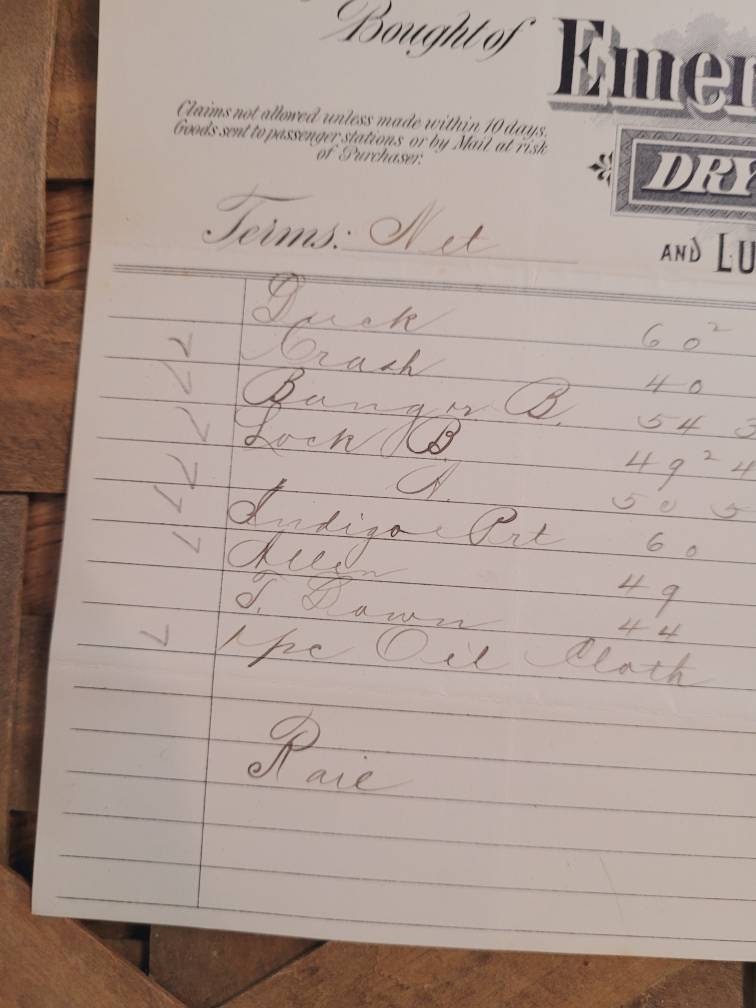 Bought of Emer
Claims not allowed unless made within 10 days.
Goods sent to passenger stations or by Mail at risk
of Purchaser.
DRY
Terms: Net
AND LU
Duck 60²
Crash 40
Bangor B. 54 3
Lock B 49² 4
A. 50 5
Indigo Prt 60
Allen 49
T. Down 44
1 pc Oil Cloth